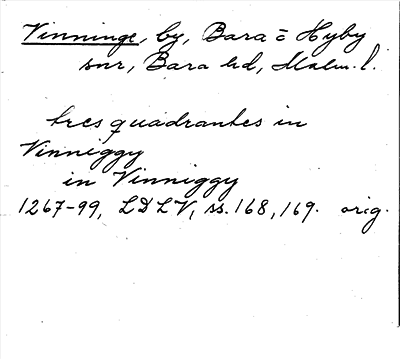 Vinninge, by, Bara o Hyby
snr, Bara hd, Malm. l.
tres quadrantes in
Vinniggy
in Vinniggy
1267-99, LDLV, ss. 168, 169. orig.